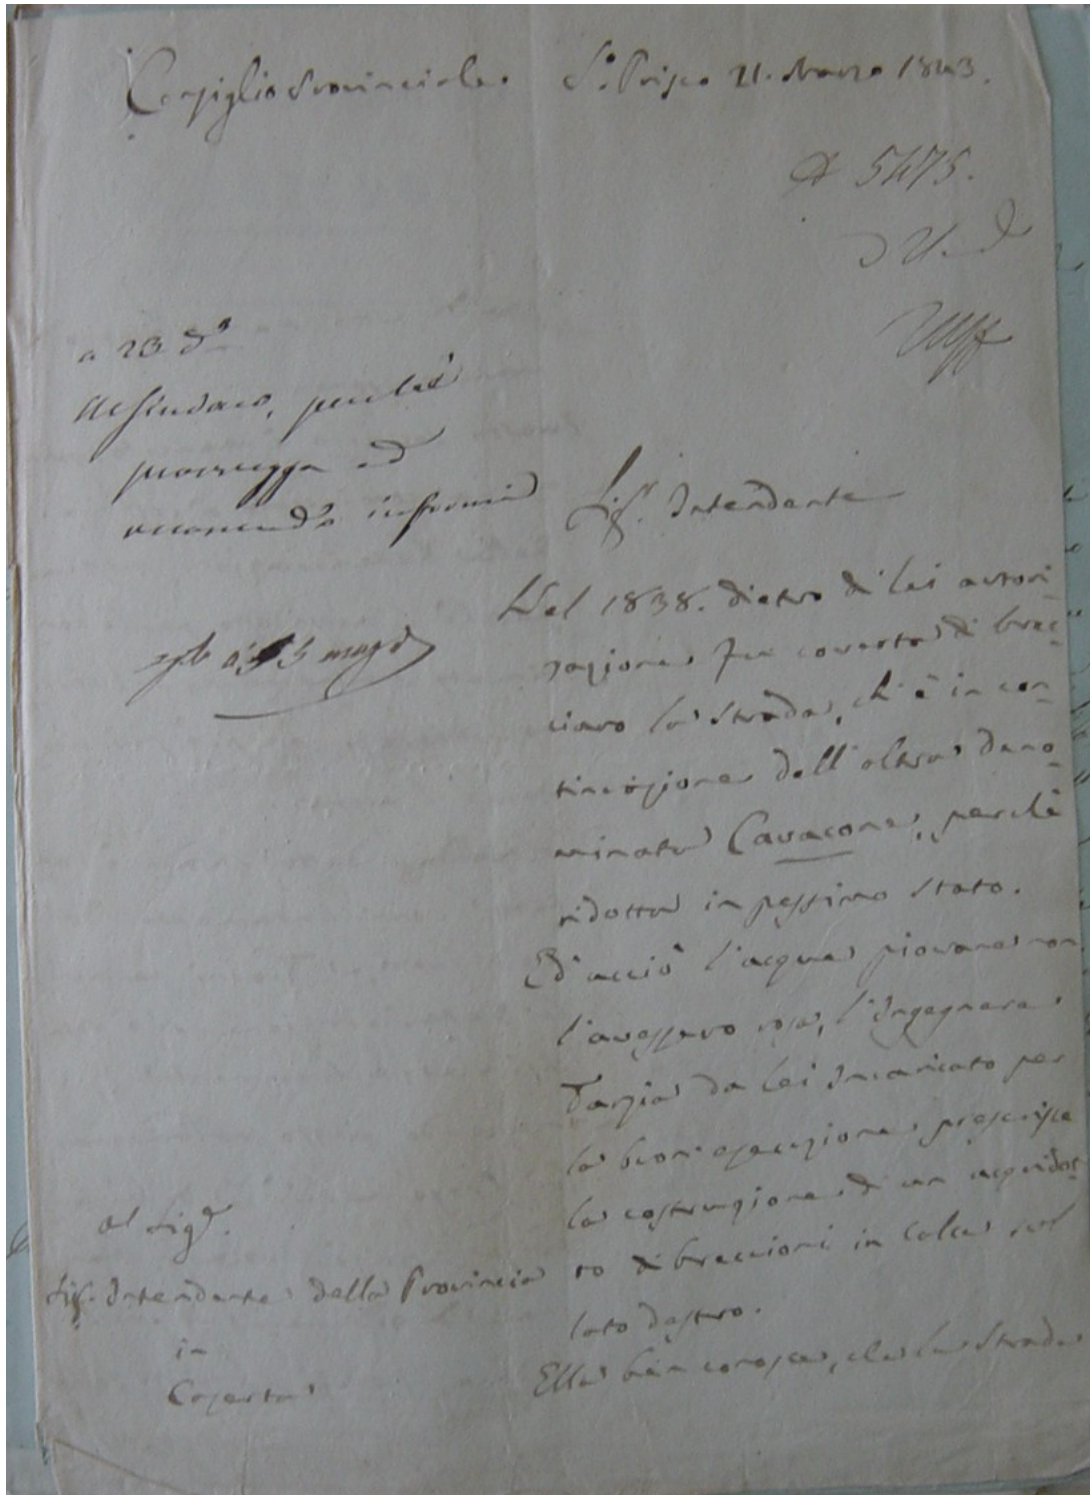 Consiglio Provinciale. S. Prisco 21. Marzo 1843.
5475.
a 23 do
Al Sindaco, perchè
provvegga ed
occorrendo informi
Sigr. Intendente
Nel 1838. dietro di lei autori-
zazione fu coverta di brec-
ciaro la strada, ch'è in con-
tinuazione dell'altra deno-
minata Cavacone, perchè
ridotta in pessimo stato.
Ed acciò l'acque piovane non
l'avessero rosa, l'Ingegnere
Tarzia da Lei Incaricato per
la buon esecuzione, prescrisse
la costruzione di un acquidot-
to di breccioni in calce sul
lato destro.
Ella ben conosce, che la strada
Al Sigr.
Sigr. Intendente della Provincia
in
Caserta